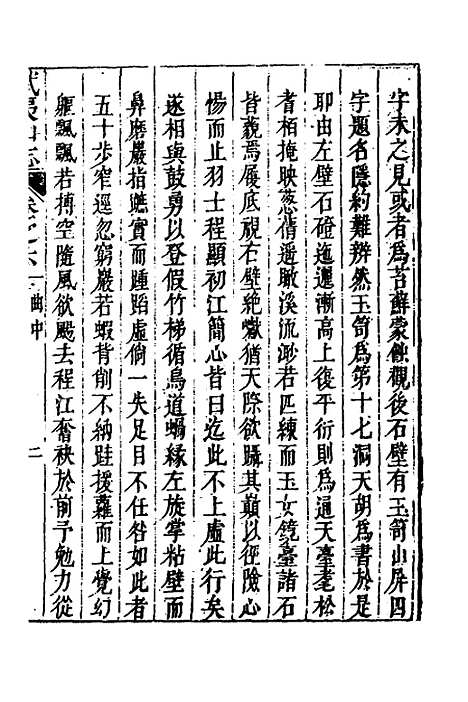 字未之見或者為苔蘚蒙蝕觀後石壁有玉笥山屏四
字題名隱約難辨然玉笥為第十七洞天胡為書於是
耶由左壁石磴迤邐漸高上復平衍則為通天臺耄松
者栢掩映葱倩遥瞰溪流渺若匹練而玉女鏡臺諸石
皆羲焉屐底視右壁絶巘猶天際欲躡其巔以徑險心
惕而止羽士程顯初江簡心皆曰迄此不上虛此行矣
遂相與鼓勇以登假竹梯循鳥道蝸緣左旋掌粘壁而
鼻磨巖指驗實而踵蹈虛倘一失足目不任咎如此者
五十步窄逕忽窮巖若蝦背削不納跬援蘿而上覺幻
軀飄飄若摶空隨風欲颺去程江奮袂於前予勉力從
武夷山志
卷之六
一曲中
二